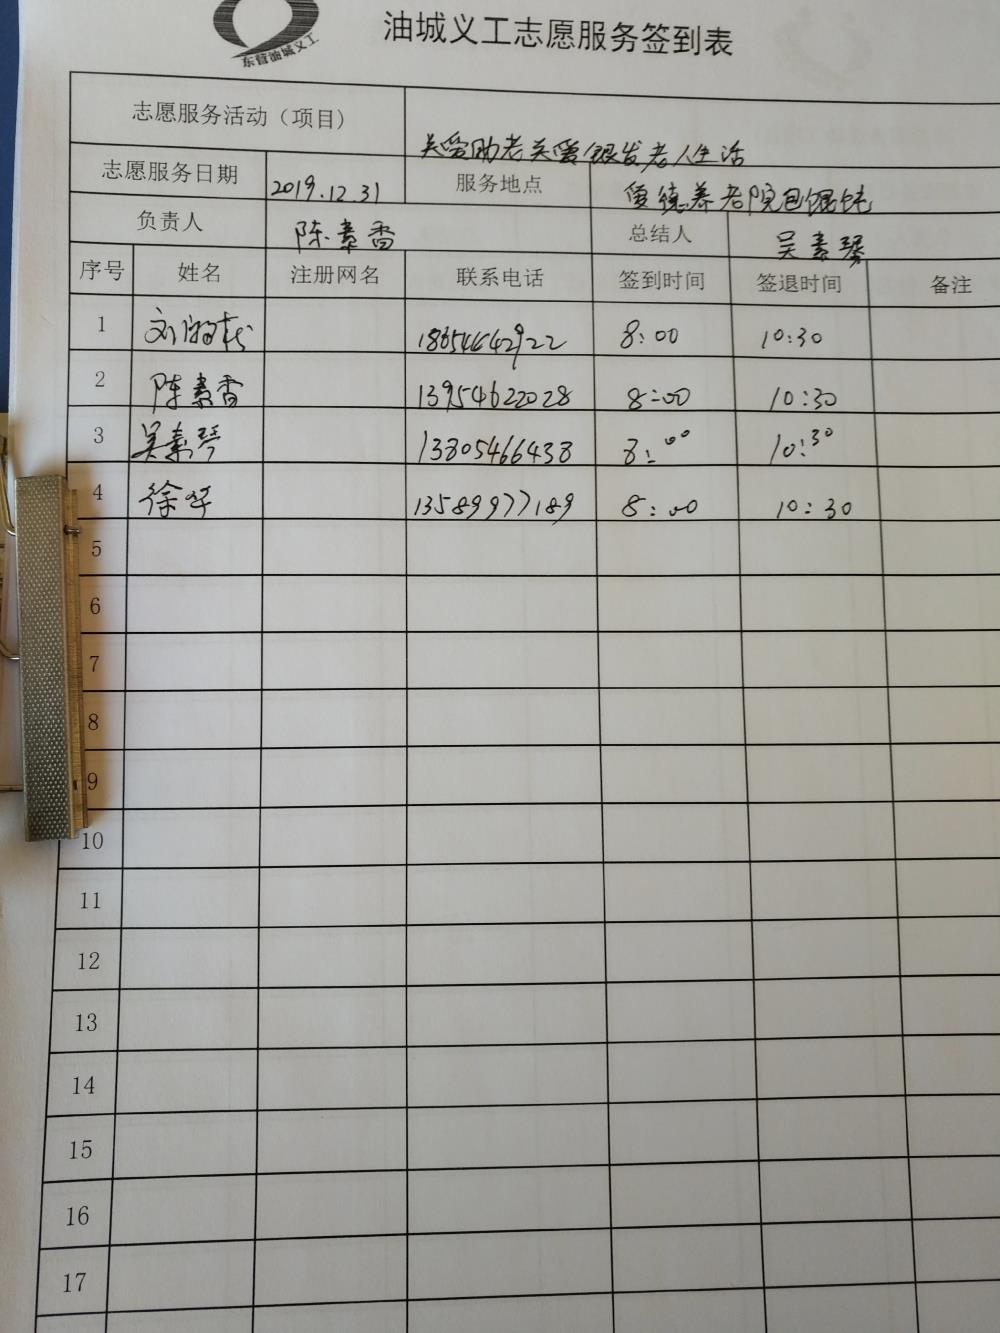 东营油城义工
油城义工志愿服务签到表
志愿服务活动（项目） 关爱助老关爱银发老人生活
志愿服务日期 2019.12.31 服务地点 贤德养老院包馄饨
负责人 陈素香 总结人 吴素琴
序号 姓名 注册网名 联系电话 签到时间 签退时间 备注
1 刘 18654642922 8:00 10:30
2 陈素香 13954622028 8:00 10:30
3 吴素琴 13805466438 8:00 10:30
4 徐华 13589977189 8:00 10:30
5
6
7
8
9
10
11
12
13
14
15
16
17